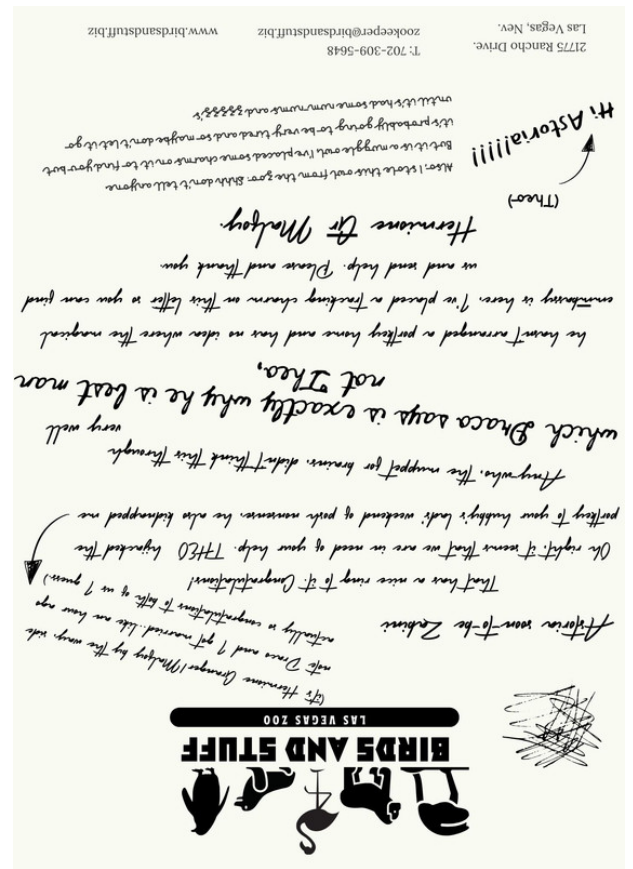 BIRDS AND STUFF
LAS VEGAS ZOO
(it's Hermione Granger/Malfoy by the way, side
note Draco and I got married...like an hour ago
actually so congratulations to both of us I guess.)
Astoria soon-to-be Zabini
That has a nice ring to it. Congratulations!
Oh right, it seems that we are in need of your help. THEO hijacked the
portkey to your hubby's lads' weekend of posh nonsense. he also kidnapped me
Any-who, the muppet for brains, didn't think this through
very well
which Draco says is exactly why he is best man
not Theo,
he hasn't arranged a portkey home and has no idea where the magical
embassy is here. I've placed a tracking charm on this letter so you can find
us and send help. Please and thank you
Hermione Gr Malfoy.
(Theo)
Hi Astoria!!!!!
Also, I stole this owl from the zoo. Shhh don't tell anyone
But it is a muggle owl, I've placed some charms on it to find you but
it's probably going to be very tired and so maybe don't let it go
until it's had some num nums and zzzzz's
21775 Rancho Drive.
Las Vegas, Nev.
T: 702-309-5648
zookeeper@birdsandstuff.biz
www.birdsandstuff.biz